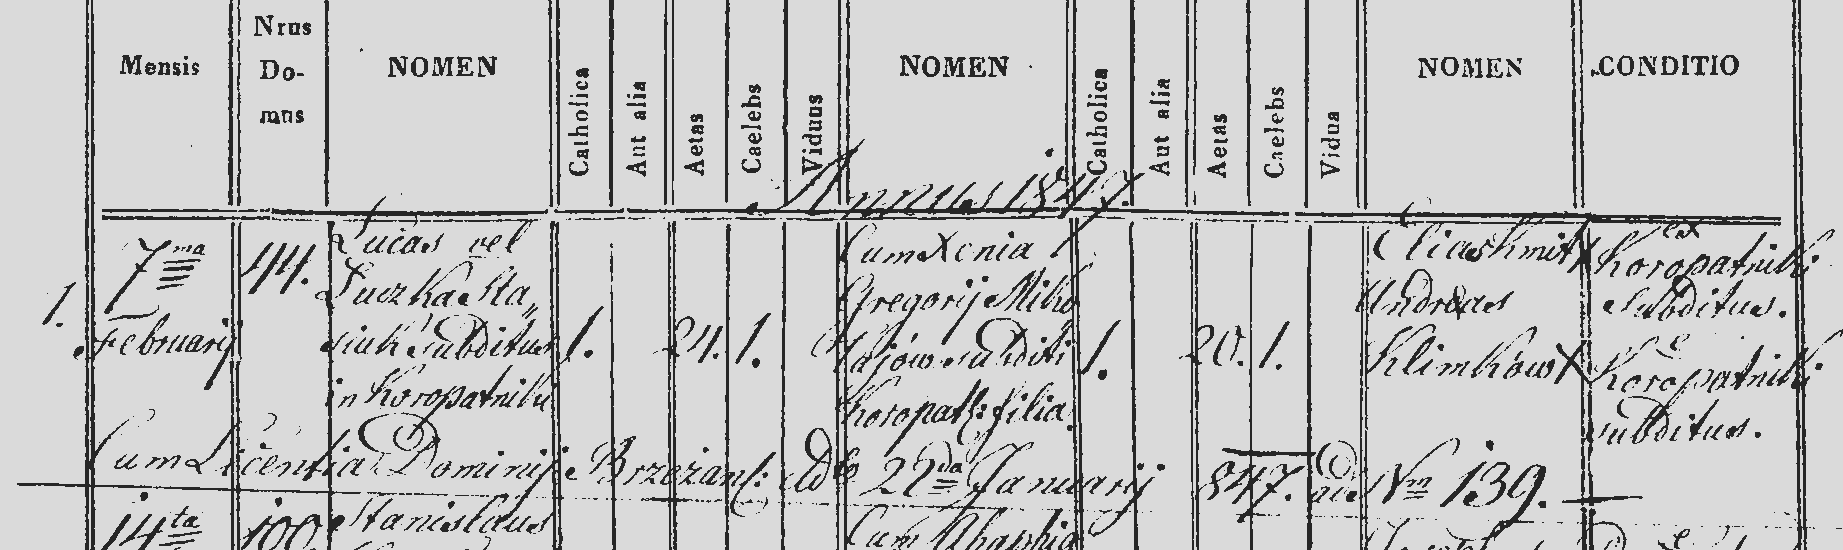 Mensis Nrus Do-mus NOMEN Catholica Aut alia Aetas Caelebs Viduus NOMEN Catholica Aut alia Aetas Caelebs Vidua NOMEN CONDITIO
Annus 1847
1. 7ma Februarij
44.
Lucas vel
Luczka Sta„
siuk subditus
in Koropatniki
1. 24. 1.
Cum Xenia
Gregorij Miko
łajów subditi
Koropatk: filia
1. 20. 1.
Elias Kmit X
Andreas
Klimków X
ex
Koropatniki
subditus.
e
Koropatniki
subditus.
Cum Licentia Dominij Brzezan: ddto 22da Januarij 847. Nm 139.
14ta 100 Stanislaus
Cum